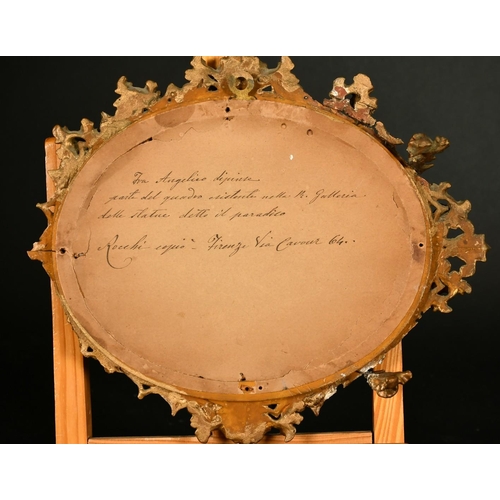 Fra Angelico dipinse
parte del quadro esistente nella R. Galleria
delle statue detto il paradiso
Rocchi copiò - Firenze Via Cavour 64.